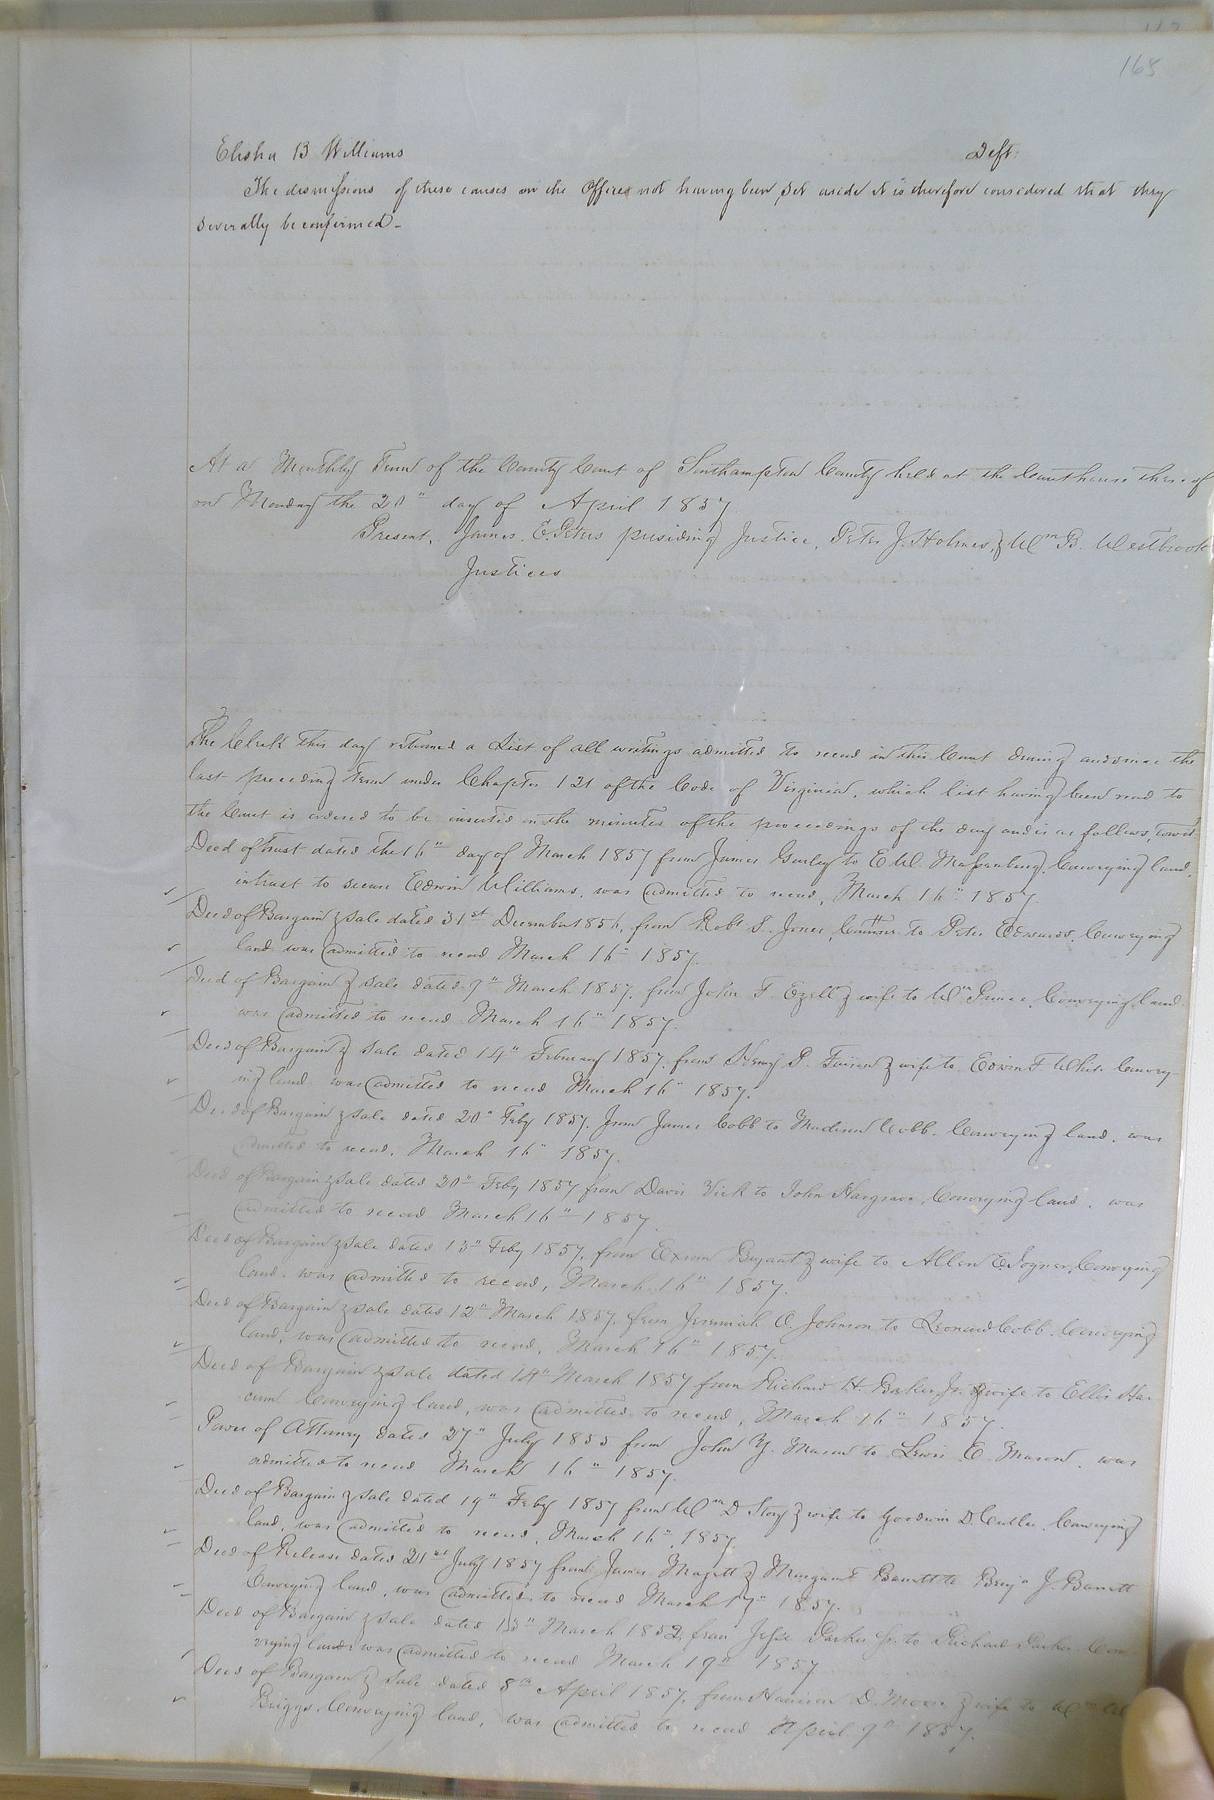 168
Elisha B Williams Deft:
The dismissions of these causes in the Office not having been set aside it is therefore considered that they
severally be confirmed -
At a Monthly Term of the County Court of Southampton County held at the Courthouse thereof
on Monday the 20" day of April 1857
Present, James E. Peters presiding Justice, Peter J. Holmes, & Wm B. Westbrook
Justices
The Clerk this day returned a List of all writings admitted to record in this Court during and since the
last preceding Term under Chapter 121 of the Code of Virginia, which list having been read to
the Court is ordered to be inserted in the minutes of the proceedings of the day and is as follows, towit
Deed of Trust dated the 16" day of March 1857 from James Gurley to E. W. Massenburg, Conveying land,
intrust to secure Edwin Williams, was admitted to record, March 16" 1857.
Deed of Bargain & sale dated 31st December 1856, from Robt S. Jones, Commr to Peter Edwards, Conveying
land was admitted to record March 16" 1857.
Deed of Bargain & sale dated 9" March 1857, from John T. Ezell & wife to Wm Prince, Conveying land
was admitted to record March 16" 1857.
Deed of Bargain & sale dated 14" February 1857, from Henry P. & wife to Edwin F. White Convey-
ing land was admitted to record March 16" 1857.
Deed of Bargain & sale dated 20" Feby 1857, from James Cobb to Madison Cobb, Conveying land, was
admitted to record, March 16" 1857.
Deed of Bargain & sale dated 20" Feby 1857 from Davis Vick to John Hargrave, Conveying land, was
admitted to record March 16" 1857.
Deed of Bargain & sale dated 13" Feby 1857, from Exum Bryant & wife to Allen E. Joyner, Conveying
land, was admitted to record, March 16" 1857.
Deed of Bargain & sale dated 12" March 1857, from Jeremiah O. Johnson to Leonard Cobb, Conveying
land, was admitted to record, March 16" 1857.
Deed of Bargain & sale dated 14" March 1857 from Richard H. Baker Jr. & wife to Ellis
Conveying land, was admitted to record, March 16" 1857.
Power of Attorney dated 27" July 1855 from John Y. Mason to Lewis E. Mason, was
admitted to record March 16" 1857.
Deed of Bargain & sale dated 19" Feby 1857 from Wm D Story & wife to Goodwin D. Cutler, Conveying
land, was admitted to record, March 16", 1857
Deed of Release dated 21st July 1857 from James Magett & Margaret Barrett to Benja J. Barrett
Conveying land, was admitted to record March 17" 1857.
Deed of Bargain & sale dated 13" March 1852, from Jesse Parker Sr. to Richard Parker Con
veying land was admitted to record March 19" 1857
Deed of Bargain & sale dated 8th April 1857, from Harrison D. Moore & wife to Wm W
Briggs, Conveying land, was admitted to record April 9" 1857.